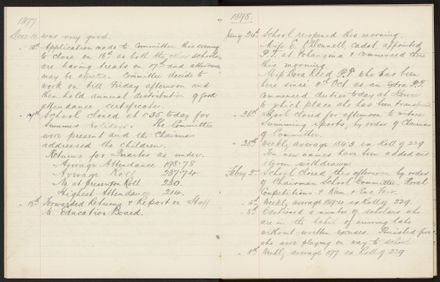 1897
Dec. 10 was very good.
15th Application made to Committee this evening
to close on 16th as both the other schools
are having treats on 17th and attendance
may be affected. Committee decide to
work on till Friday afternoon and
then hold annual distribution of good
attendance certificates.
17th School closed at 1.35 today for
Summer holidays. The Committee
were present and the Chairman
addressed the children.
Returns for Quarter as under.
Average Attendance 198.78
Average Roll 237.74
No. at present on Roll 230.
Highest Attendance 214.
18th Forwarded Returns & Report on Staff
to Education Board.
1898.
Jany 24th School reopened this morning.
Miss E. O'Donnell, cadet, appointed
P.T. at Tokomaru & commenced there
this morning.
Miss Dora Reed P.T. who has been
here since Oct. as an extra P.T.
commenced duties today at
to which place she has been transferred.
26th School closed for afternoon to witness
Swimming Sports, by order of Chairman
of Committee.
28th Weekly average 184.3 ex Roll of 229
new names have been added and
withdrawn.
Febry 3rd School closed this afternoon by order
of Chairman School Committee, Floral
4th Weekly average 189.4 ex Roll of 229.
8th Cautioned a number of scholars who
are in the habit of coming late
without written excuses. Punished for
who were playing on way to school.
11th Weekly average 197 ex Roll of 229